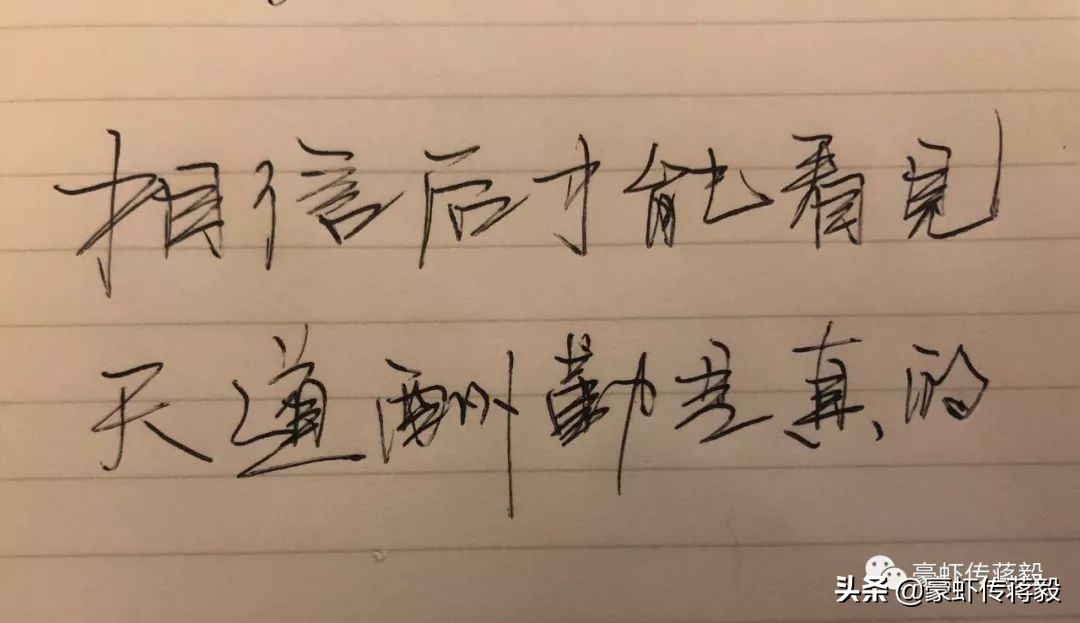 相信后才能看见
天道酬勤是真的
豪虾传蒋毅
头条@豪虾传蒋毅